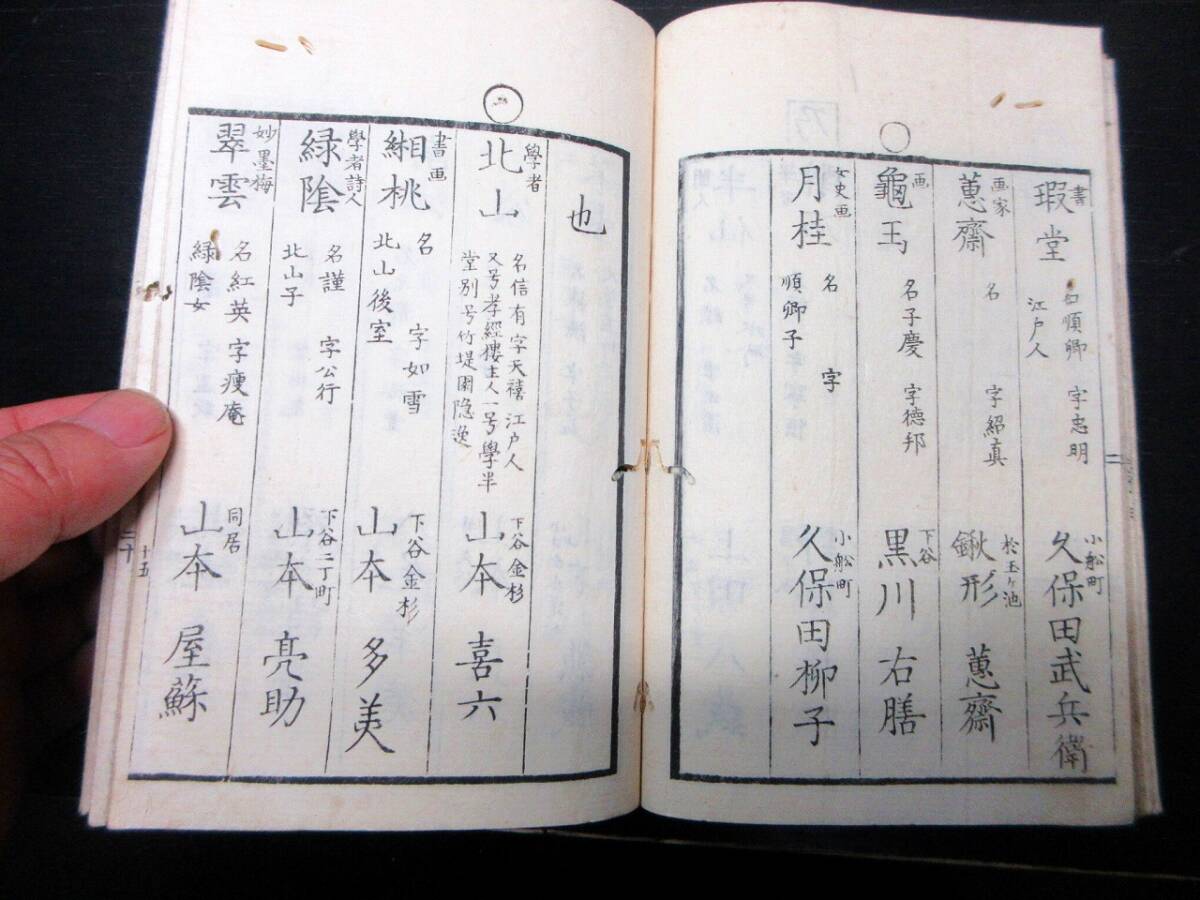 書
瑕堂
名順卿 字忠明
江戸人
小舩町
久保田武兵衛
画家
蕙齋
名 字紹真
松玉ヶ池
鍬形 蕙齋
画
龜玉
名子慶 字德邦
下谷
黒川 右膳
女史画
月桂
名 字
順卿子
小舩町
久保田柳子
也
學者
北山
名信有 字天禧 江戸人
又号孝經樓主人一号學半
堂別号竹堤園隐逸
下谷金杉
山本 喜六
書画
緗桃
名 字如雪
北山後室
下谷金杉
山本 多美
學者詩人
緑陰
名謹 字公行
北山子
下谷二丁町
山本 亮助
妙墨梅
翠雲
名紅英 字瘦庵
緑陰女
同居
山本 屋蘇
十五
二十